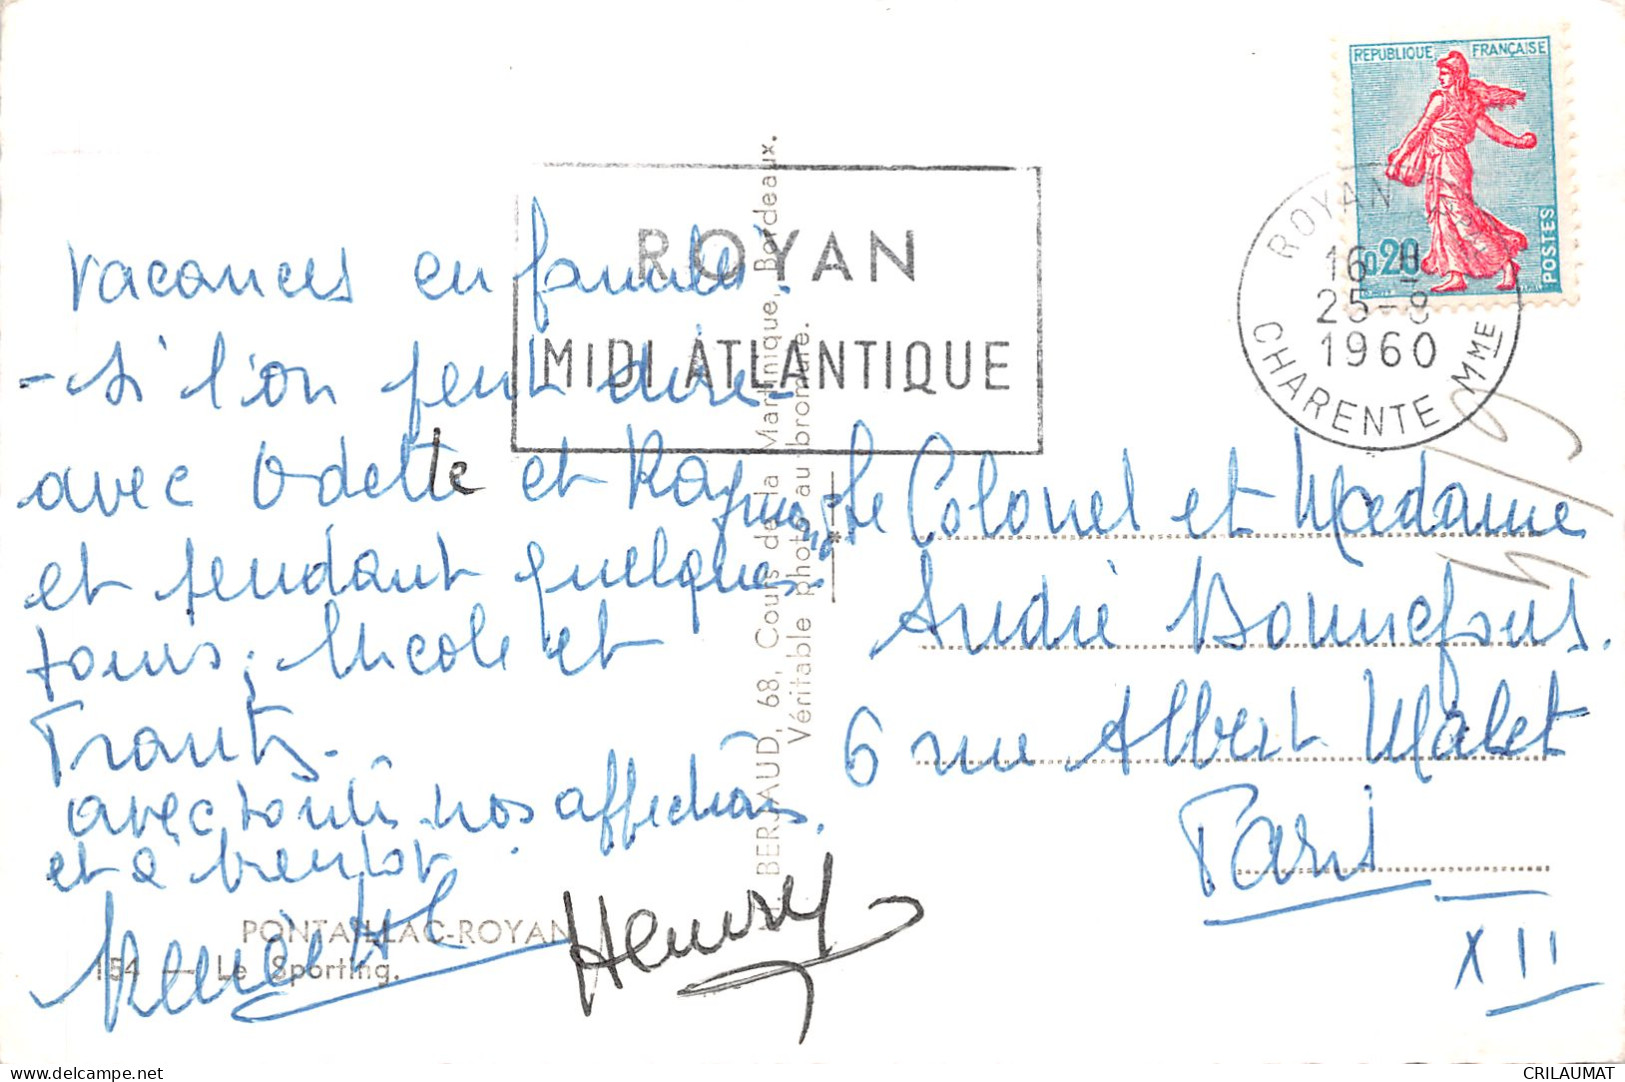 REPUBLIQUE FRANÇAISE
0,20
POSTES
ROYAN
16 H
25-8
1960
CHARENTE MME
ROYAN
MIDI ATLANTIQUE
vacances en famille.
- si l'on peut dire -
avec Odette et Raymonde
et pendant quelques
jours, Nicole et
Frantz -
avec toutes nos affections
et à bientôt.
Henry
Le Colonel et Madame
André Bonnefous.
6 rue Albert Malet
Paris
XII
PONTAILLAC-ROYAN
154 — Le Sporting.
BERJAUD, 68, Cours de la Martinique, Bordeaux.
Véritable photo au bromure.
delcampe.net
CRILAUMAT